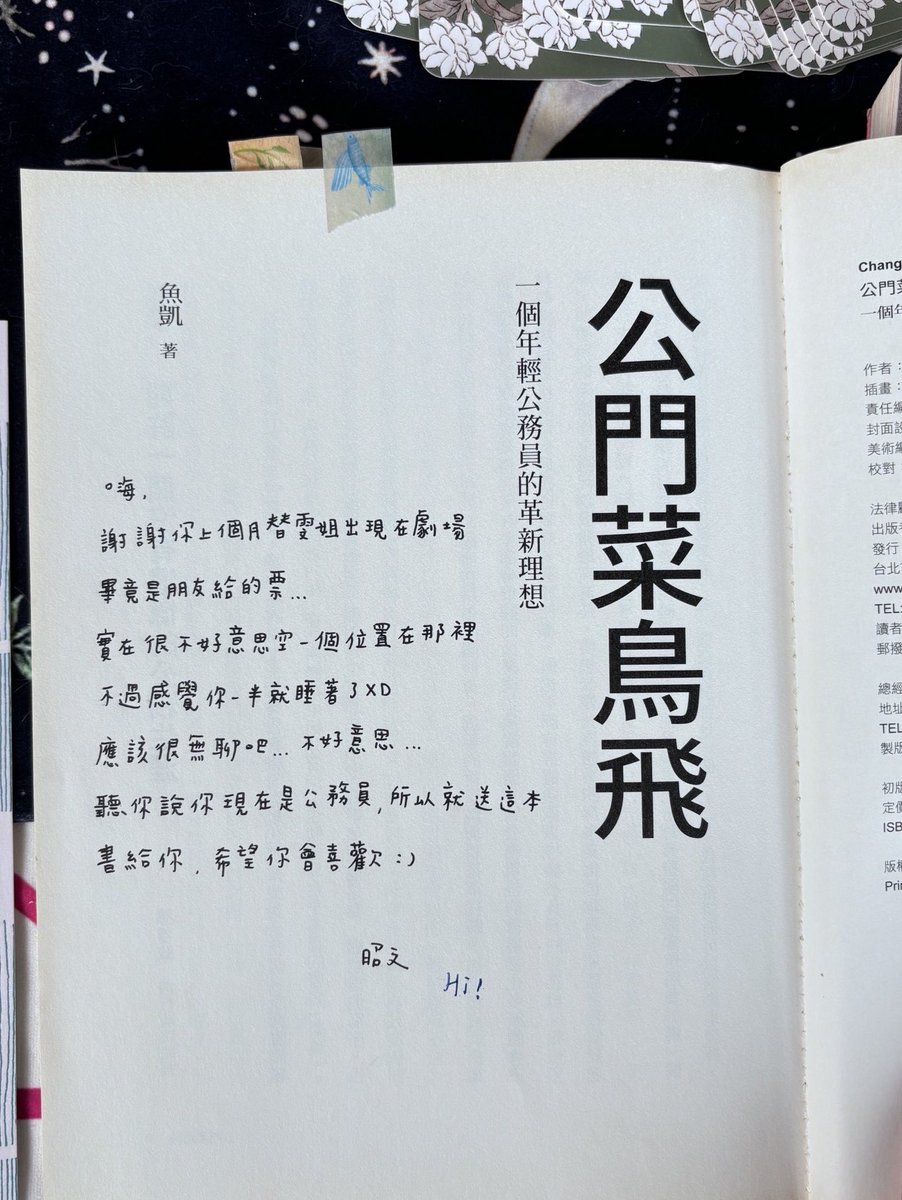 公門菜鳥飛
一個年輕公務員的革新理想
魚凱 著
嗨,
謝謝你上個月替雯姐出現在劇場
畢竟是朋友給的票...
實在很不好意思空一個位置在那裡
不過感覺你一半就睡著了XD
應該很無聊吧... 不好意思...
聽你說你現在是公務員,所以就送這本
書給你,希望你會喜歡:)
昭文
Hi!
Chang
公門菜
一個年
作者:
插畫:
責任編
封面設
美術編
校對
法律顧
出版者
發行
台北市
www
TEL:
讀者
郵撥
總經
地址
TEL
製版
初版
定價
ISB
版權
Prin